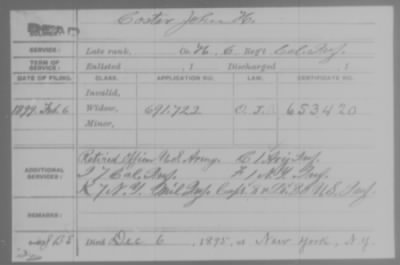 Coster John H.
SOLDIER:
SERVICE: Late rank, Co. H, 6 Reg't Cal. Inf.
TERM OF SERVICE: Enlisted , 1 Discharged , 1
DATE OF FILING. CLASS. APPLICATION NO. LAW. CERTIFICATE NO.
Invalid,
1899. Feb. 6 Widow, 691.722 653.420
Minor,
ADDITIONAL SERVICES: Retired Officer U.S. Army. C 1
7 Cal. Inf. F 1 N.Y.
K 7 N.Y. Mil. Inf. Capt. U.S. Inf.
REMARKS:
Died Dec 6, 1895, at New York, N.Y.